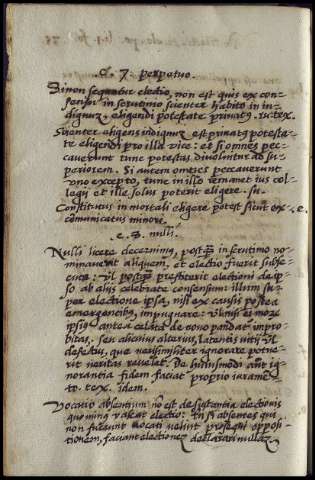 .c. 7. perpetuo.
Si non sequatur electio, non est quis ex con-
sensu in scrutinio scienter habito in in-
dignum eligendi potestate privatus. iu. tex.
Scienter eligens indignum est privatus potesta-
te eligendi pro illa vice: et si omnes pec-
caverunt tunc potestas divolvitur ad su-
periorem. Si autem omnes peccaverunt
uno excepto, tunc in illo remanet ius col-
legii et ille solus poterit eligere. su.
Constitutus in mortali eligere potest sicut ex-
comunicatus minore. .e.
c. 8. nulli.
Nulli licere decernimus, postqm in scrutinio no-
minaverit aliquem, et electio fuerit subse-
cuta: Vl postqm prestiterit electioni de ip-
so ab aliis celebrate consensum illum su-
per electione ipsa, nisi ex causis postea
emergentibus, impugnare: Vl nisi ei mores
ipsius antea celata de novo pandat impro-
bitas, seu alicuius alterius, latentis vitii, Vl
defectus, que verisimiliter ignorare potue-
rit veritas revelet. De huiusmodi aut ig-
norantia fidem faciat proprio iuramen-
to. tex. idem.
Vocatio absentium no est de substantia electionis
quo minus valeat electio: Et si absentes qui
non fuerunt vocati velint prosequi opposi-
tionem, faciunt electionem declarari nullam